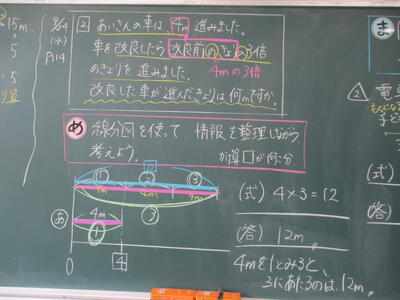 15m.
5
= 5
8/24
(水)
P.114
2 あいさんの車は 4m 進みました。
車を改良したら 改良前のきょりの3倍
のきょりを 進みました。 4mの3倍
改良した車が進んだきょりは何mですか。
め 線分図を使って、情報を整理しながら
考えよう。
① ② ③
4m 4m 4m
③
あ 4m
①
0 4
(式) 4×3=12
(答) 12m
4mを1とみると、
3にあたるのは、12m。
ま
② 電車
(式)
(答)